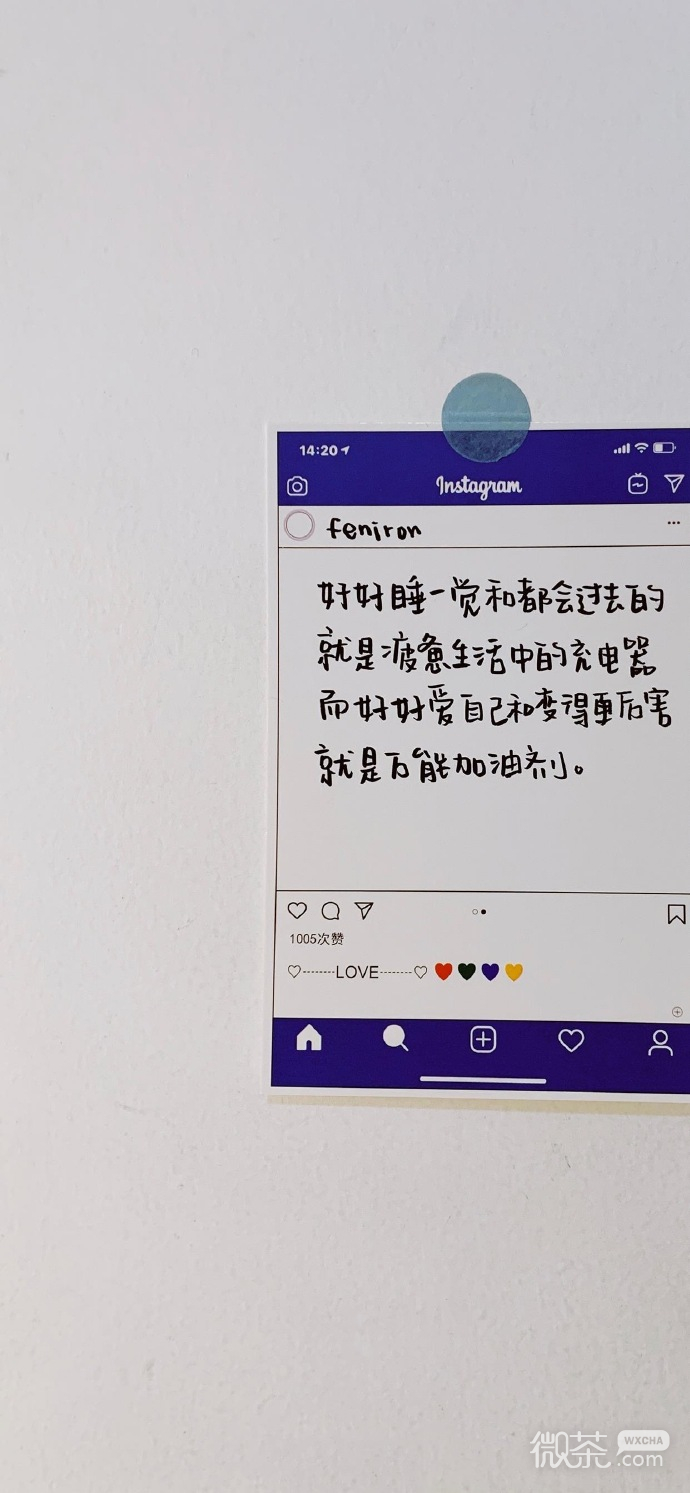 14:20
Instagram
feniron
好好睡一觉和都会过去的
就是疲惫生活中的充电器
而好好爱自己和变得更厉害
就是万能加油剂。
1005次赞
♡--------LOVE-------♡
微茶 WXCHA
.com